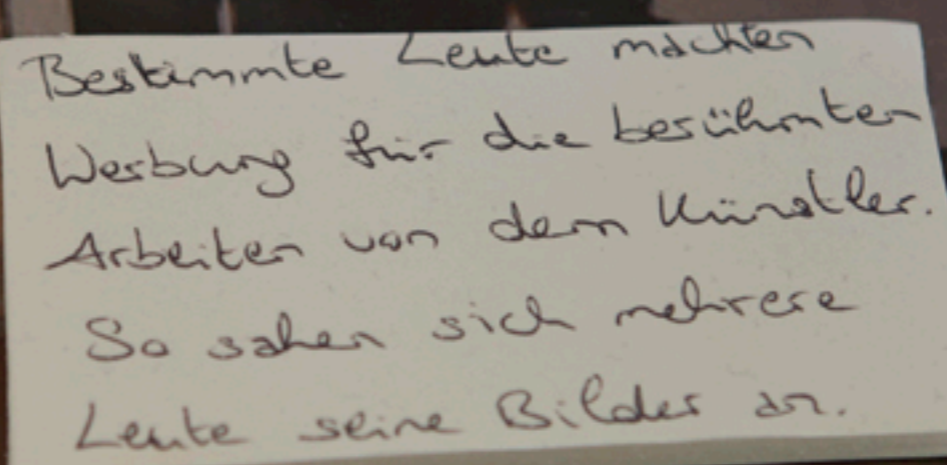 Bestimmte Leute machten
Werbung für die berühmten
Arbeiten von dem Künstler.
So sahen sich mehrere
Leute seine Bilder an.